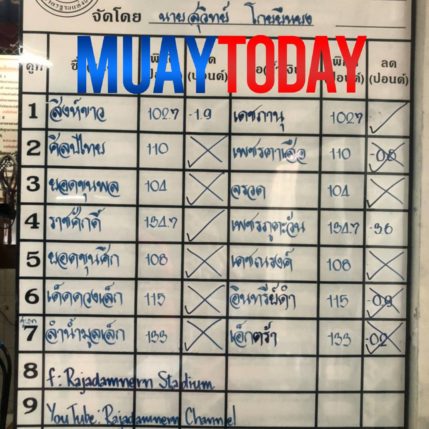 จัดโดย นายสุวิทย์ โกยยืนยง
MUAYTODAY
คู่ที่
ลด (ปอนด์)
1 สิงห์ขาว 102.7 -1.9 เดชภานุ 102.7
2 ศิลป์ไทย 110 เพชรตาเสือ 110
3 ยอดขุนพล 104 จรวด 104
4 ราชศักดิ์ 134.7 เพชรภูตะวัน 134.7 -.36
5 ยอดขุนศึก 108 เดชณรงค์ 108
6 เด็ดดวงเล็ก 115 อินทรีย์ดำ 115
7 ลำน้ำมูลเล็ก 133 เอ็กตร้า 133 -.02
8 f: Rajadamnern Stadium
9 YouTube: Rajadamnern Channel